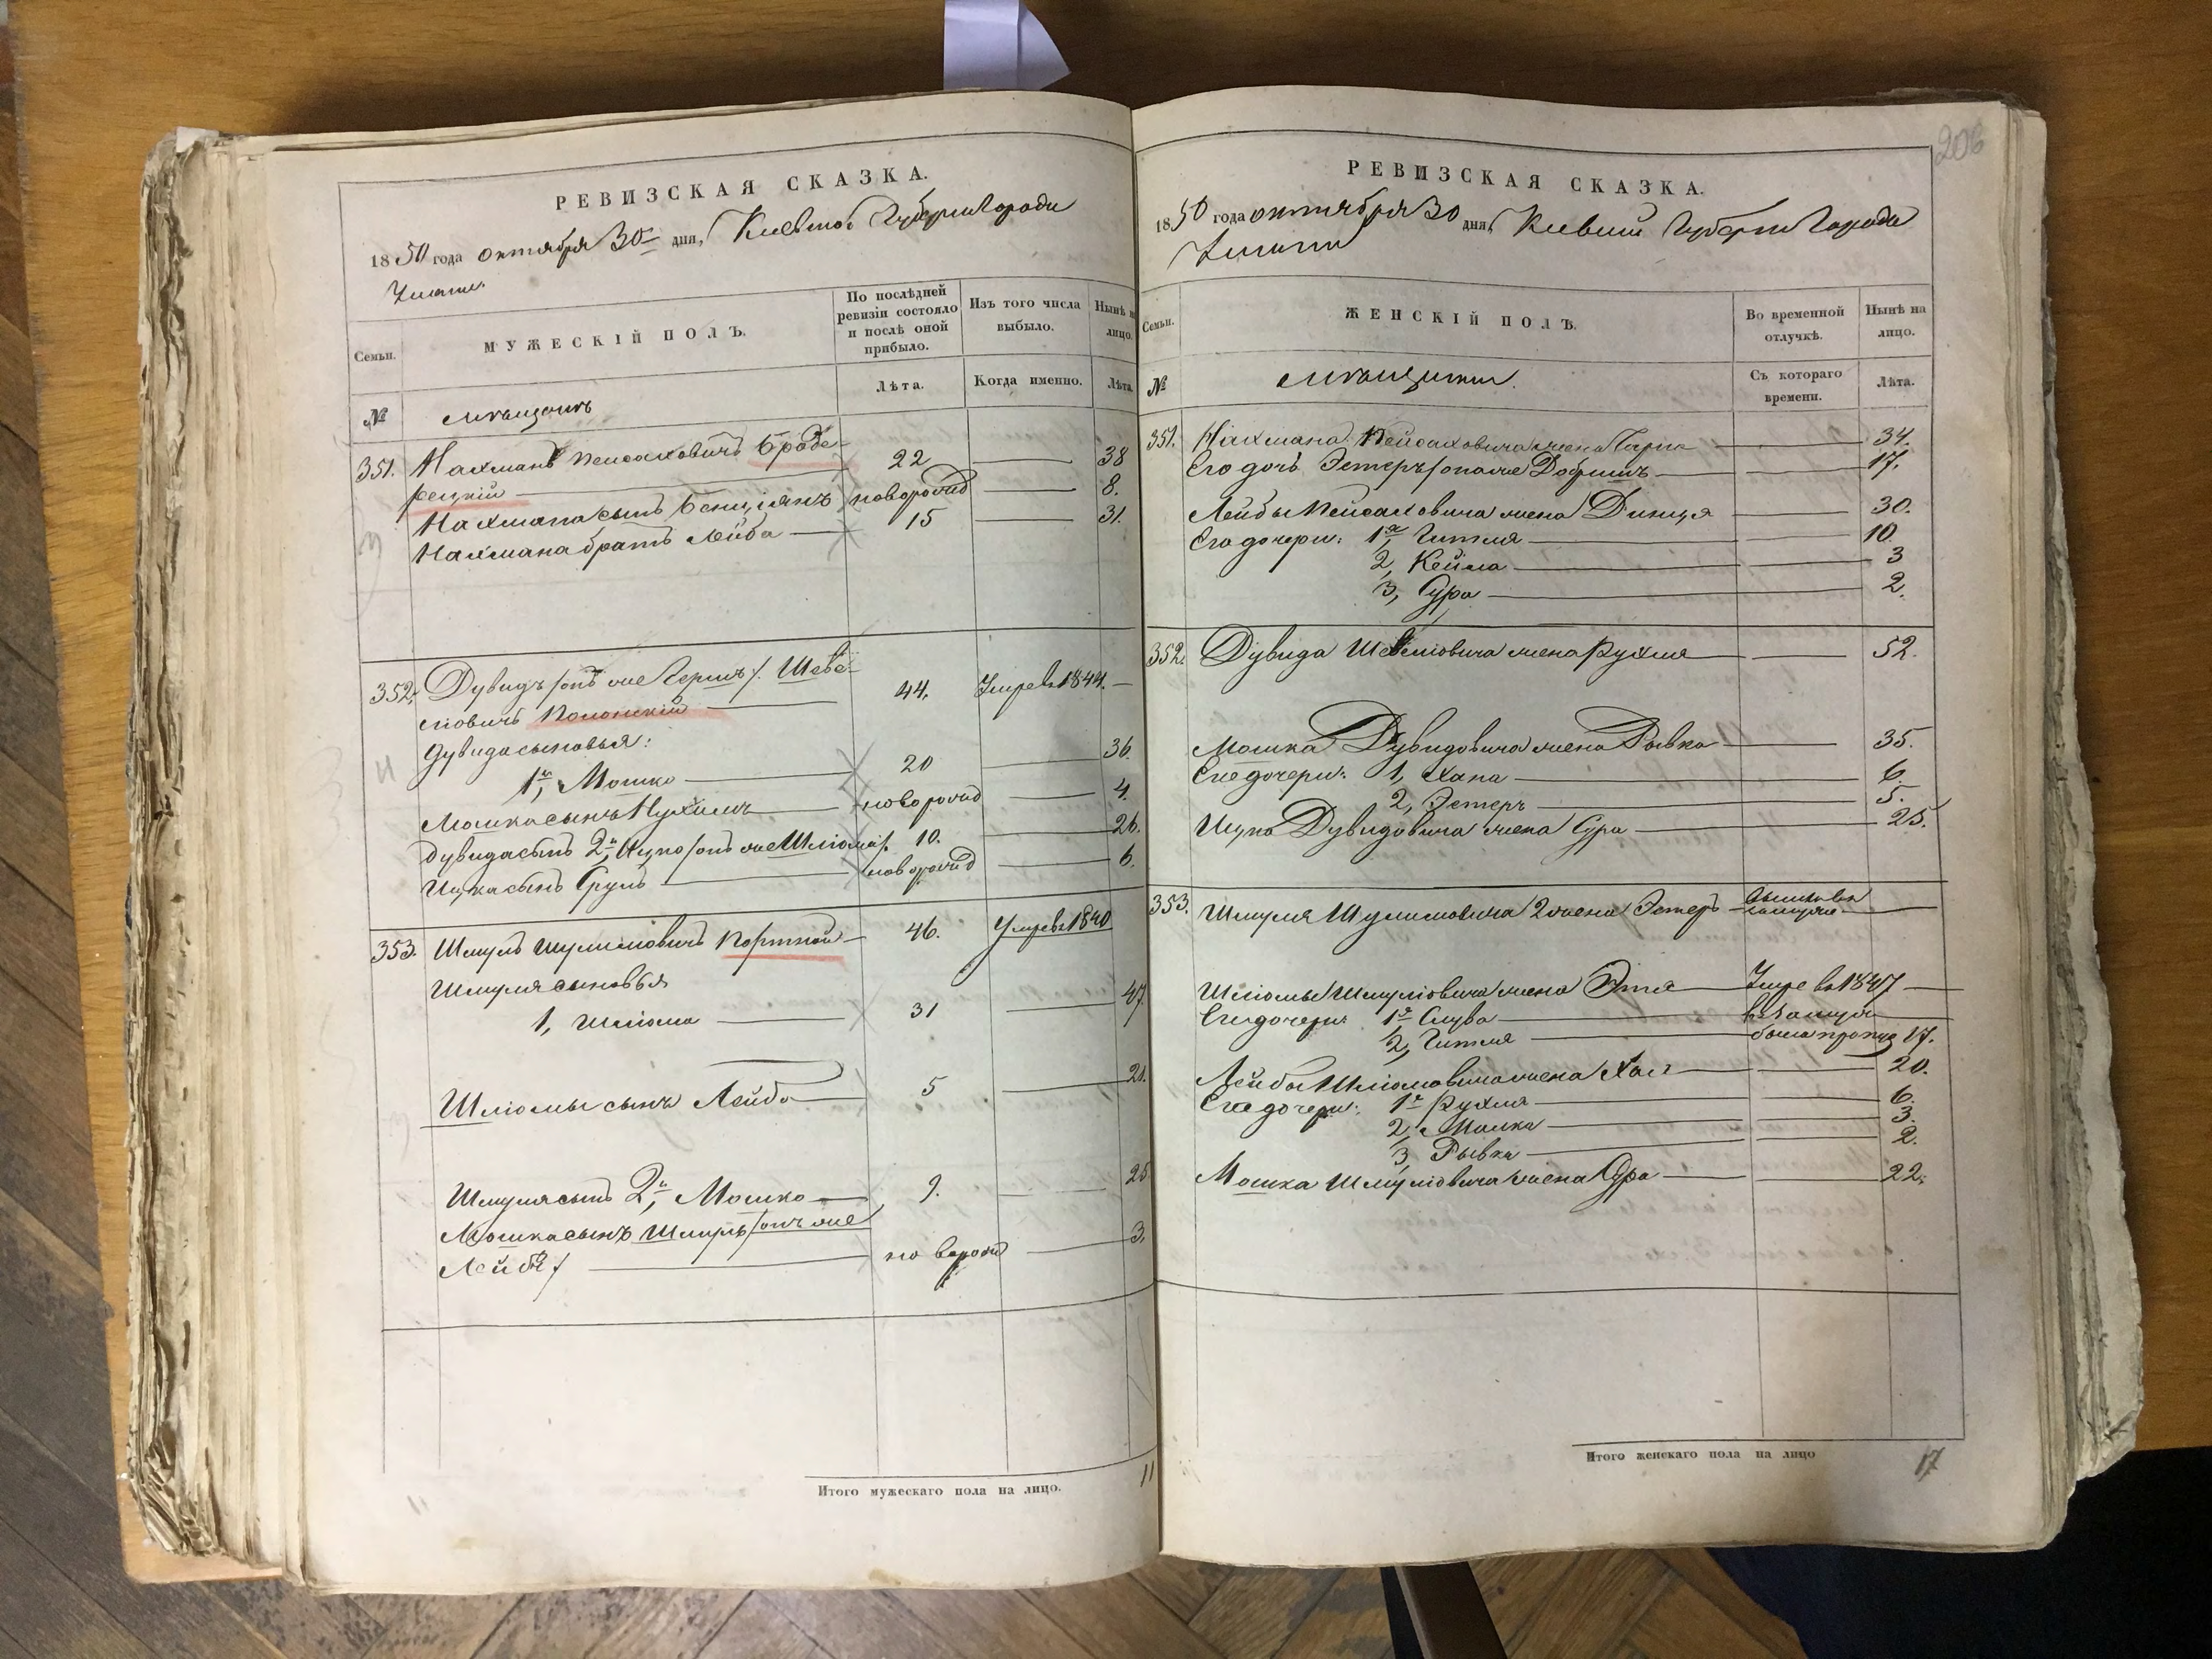 РЕВИЗСКАЯ СКАЗКА.
1850 года октября 30 дня, Киевской Губернии Города
Умани.
Семьи.
МУЖЕСКІЙ ПОЛЪ.
По послѣдней
ревизіи состояло
и послѣ оной
прибыло.
Изъ того числа
выбыло.
Нынѣ на
лицо.
Лѣта.
Когда именно.
Лѣта.
№
мѣщанъ
351. Нахманъ Пейсаховичъ Браде- 22 38
рецкій
Нахмана сынъ Бенціянъ новорожд 8.
Нахмана братъ Лейба 15 31.
352. Дувидъ /онъ же Гершъ/. Шеве- 44. Умре въ 1844.
ліовичъ Полонскій
Дувида сыновья:
1й, Мошко 20 36.
Мошка сынъ Нухимъ новорожд 4.
Дувида сынъ 2й, Ицко /онъ же Шліома/. 10. 26.
Ицка сынъ Сруль новорожд 6.
353. Шмуль Шулимовичъ Портной 46. Умре въ 1840
Шмуля сыновья
1, Шліома 31 47
Шліомы сынъ Лейба 5 21.
Шмуля сынъ 2й, Мошко 9. 25
Мошка сынъ Шмуль /онъ же
Лейба/ новорожд 3.
Итого мужескаго пола на лицо. 11
206
РЕВИЗСКАЯ СКАЗКА.
1850 года октября 30 дня, Киевской Губернии Города
Умани
Семьи.
ЖЕНСКІЙ ПОЛЪ.
Во временной
отлучкѣ.
Нынѣ на
лицо.
№
мѣщанки.
Съ котораго
времени.
Лѣта.
351. Нахмана Пейсаховича жена 34.
Его дочь Эстеръ /она же Добришъ 17.
Лейбы Пейсаховича жена Динця 30.
Его дочери: 1я, Гитля 10.
2, Кейла 3
3, Сура 2.
352. Дувида Шевеліовича жена Рухля 52.
Мошка Дувидовича жена Рывка 35.
Его дочери: 1, Хана 6.
2, Эстеръ 5.
Ицка Дувидовича жена Сура 25.
353. Шмуля Шулимовича 2 жена Эстеръ
Шліомы Шмуліовича жена Этя Умре въ 1847
Его дочери: 1я, Слува
2, Гитля была пропущ 17.
Лейбы Шліомовича жена Хая 20.
Его дочери: 1я Рухля 6.
2, Малка 3.
3, Рывка 2.
Мошка Шмуліовича жена Сура 22.
Итого женскаго пола на лицо 17